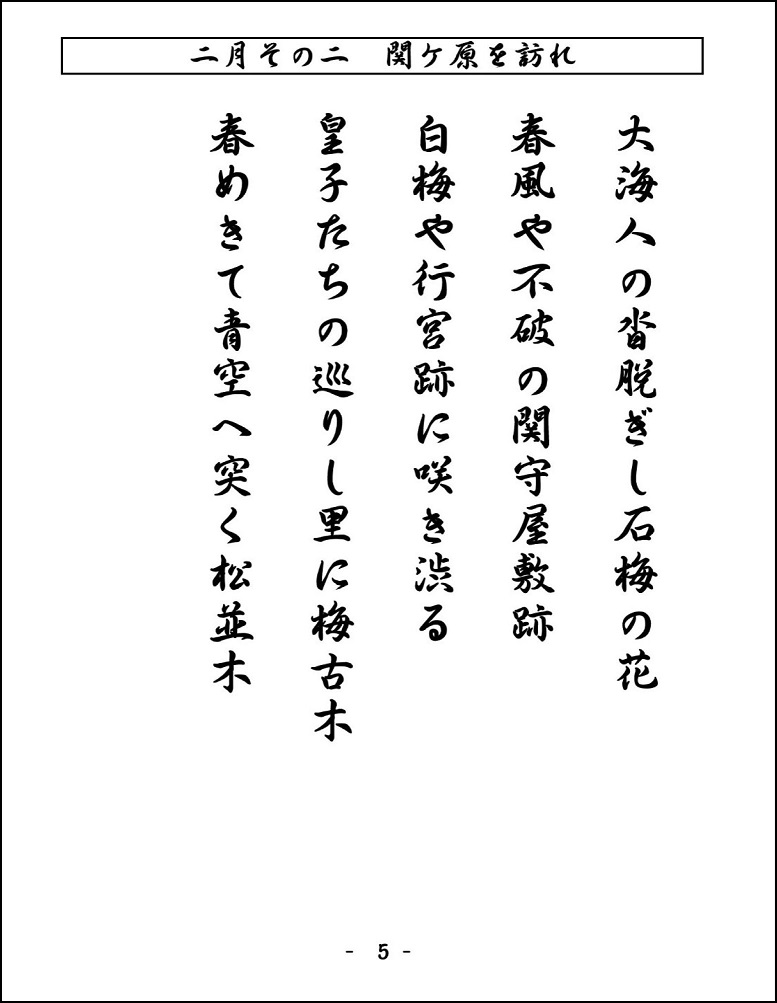 二月その二　関ケ原を訪れ
大海人の沓脱ぎし石梅の花
春風や不破の関守屋敷跡
白梅や行宮跡に咲き渋る
皇子たちの巡りし里に梅古木
春めきて青空へ突く松並木
- 5 -